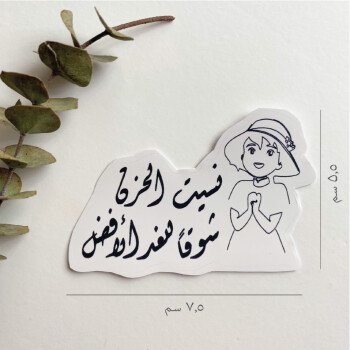 نسيت الحزن
شوقاً لغد الأفضل
٥,٥ سم
٧,٥ سم